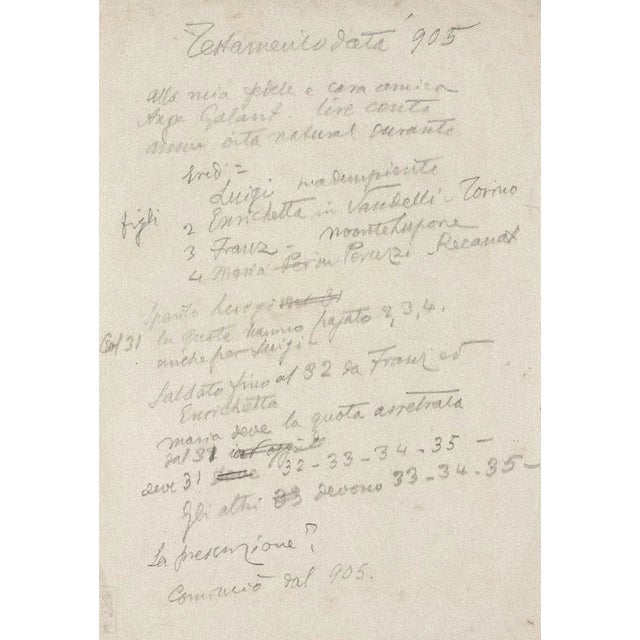 Testamento data '905
alla mia fedele e cara amica
Ange Galant. lire cento
annui vita natural durante
Eredi =
Luigi inadempiente
figli 2 Enrichetta in Vandelli - Torino
3 Franz - Montelupone
4 Maria Perin Peruzzi Recanati
Sparito
Dal 31 la quota hanno pagato 2, 3, 4.
anche per Luigi -
Saldato fino al 32 da Franz ed
Enrichetta
Maria deve la quota arretrata
dal 31
deve 31 32 - 33 - 34 - 35 -
Gli altri 33 devono 33 - 34 - 35 -
La prescrizione?
Cominciò dal 905.